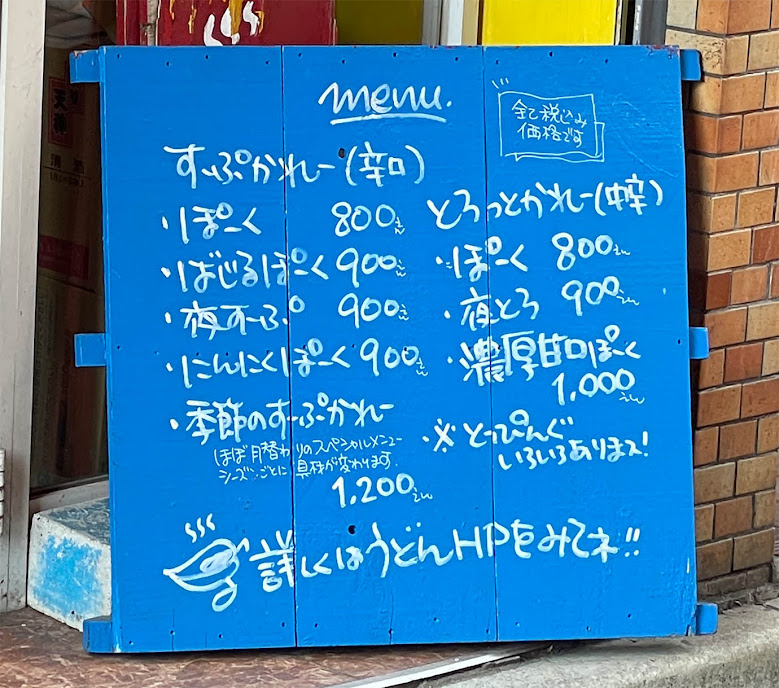 menu.
全て税込み
価格です
すーぷかれー(辛口)
・ぽーく 800えん
・ばじるぽーく 900えん
・夜すーぷ 900えん
・にんにくぽーく 900えん
・季節のすーぷかれー
ほぼ月替わりのスペシャルメニュー
シーズンごとに具材が変わります。
1,200えん
とろっとかれー(中辛)
・ぽーく 800えん
・夜とろ 900えん
・濃厚甘口ぽーく
1,000えん
・※とっぴんぐ
いろいろあります!
詳しくはうどんHPをみてネ!!